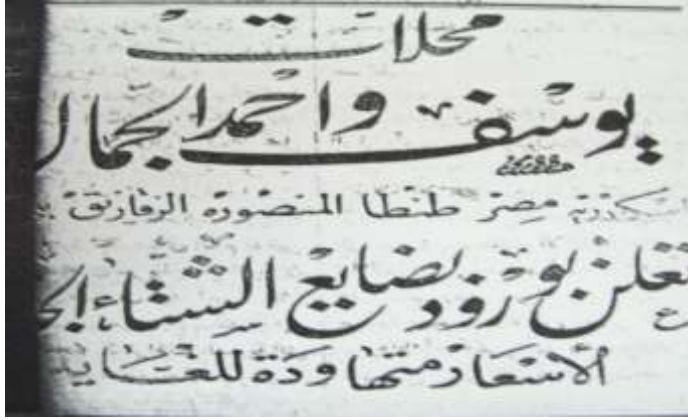 محلات
يوسف واحمد الجمال
اسكندرية مصر طنطا المنصوره الزقازيق
تعلن بورود بضايع الشتاء
الاسعار متهاودة للغاية